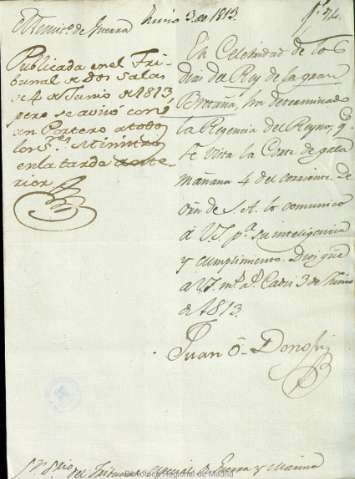 El Ministº de Guerra
Junio 3 de 1813.
Publicada en el Tri-
bunal de dos Salas
de 4 de Junio de 1813
pero se avisó con
un Portero a todos
los Sres Ministros
en la tarde ante-
rior
En Celebridad de los
dias del Rey de la gran
Bretaña, ha determinado
la Regencia del Reyno, q
se vista la Corte de gala
mañana 4 del corriente. de
orn de S.A. lo comunico
á VS pª su inteligencia
y cumplimiento. Dios gue
á VS. ms as. Cadiz 3 de Junio
de 1813
Juan O-Donojú
Sr Srio del Tribunal especial de Guerra y Marina